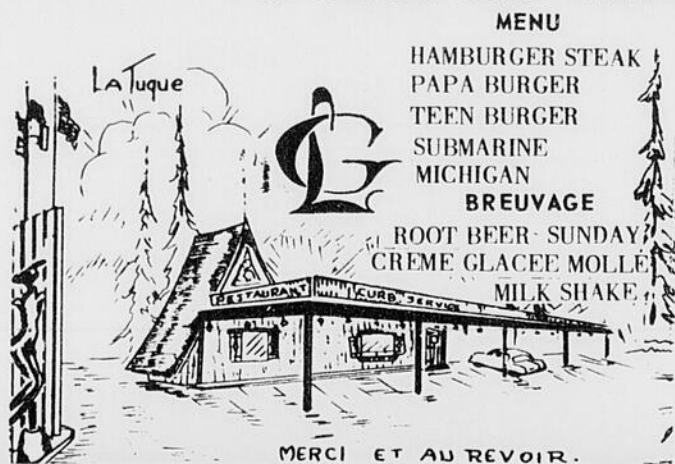 MENU
HAMBURGER STEAK
PAPA BURGER
TEEN BURGER
SUBMARINE
MICHIGAN
BREUVAGE
ROOT BEER - SUNDAY
CREME GLACEE MOLLE
MILK SHAKE
La Tuque
GL
RESTAURANT CURB SERVICE
MERCI ET AU REVOIR.